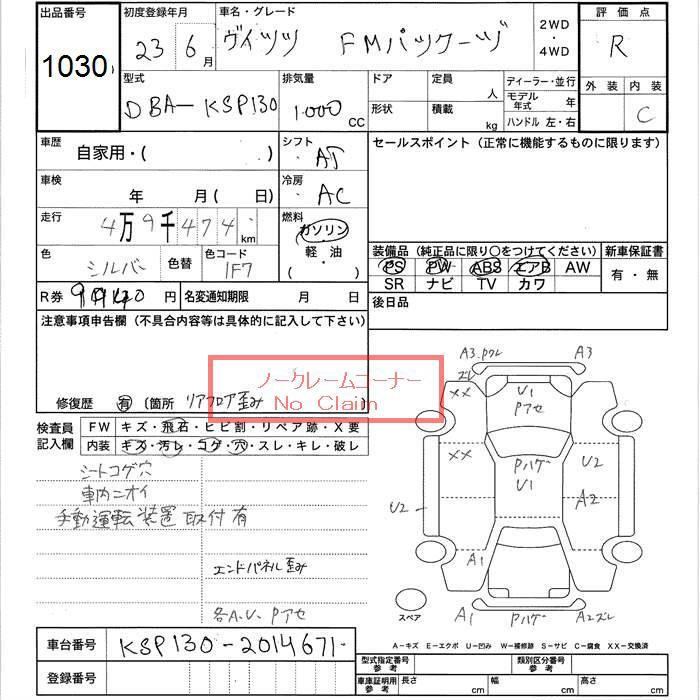 出品番号
1030
初度登録年月
23 6月
車名・グレード
ヴィッツ FMパッケージ
2WD
・
4WD
評価点
R
型式
DBA-KSP130
排気量
1000 CC
ドア
定員
人
形状
積載
kg
ディーラー・並行
モデル年式 年
ハンドル 左・右
外装 内装
C
車歴
自家用・( )
シフト
AT
セールスポイント (正常に機能するものに限ります)
車検
年 月( 日)
冷房
AC
走行
4万9千474 km
燃料
ガソリン
軽・油
・( )
色
シルバー
色替
色コード
1F7
装備品 (純正品に限り○をつけてください)
新車保証書
PS PW ABS エアB AW
SR ナビ TV カワ
有・無
R券
円
名変通知期限 月 日
後日品
注意事項申告欄 (不具合内容等は具体的に記入して下さい)
ノークレームコーナー
No Claim
修復歴 有 (箇所 リアフロア歪み
検査員記入欄
FW キズ・飛石・ヒビ割・リペア跡・X要
内装 キズ・汚レ・コゲ・穴・スレ・キレ・破レ
シートコゲ穴
車内ニオイ
手動運転装置取付有
エンドパネル歪み
各A.U.Pアセ
A3.Pワレ
ズレ
A3
XX
U1
Pアセ
XX
Pハゲ
U1
U2
U2
A2
A1
A1
Pハゲ
A2ズレ
スペア
車台番号
KSP130-2014671
登録番号
A-キズ E-エクボ U-凹み W-補修跡 S-サビ C-腐食 XX-交換済
型式指定番号 参考
類別区分番号 参考
車庫証明用 参考
長さ cm
幅 cm
高さ cm